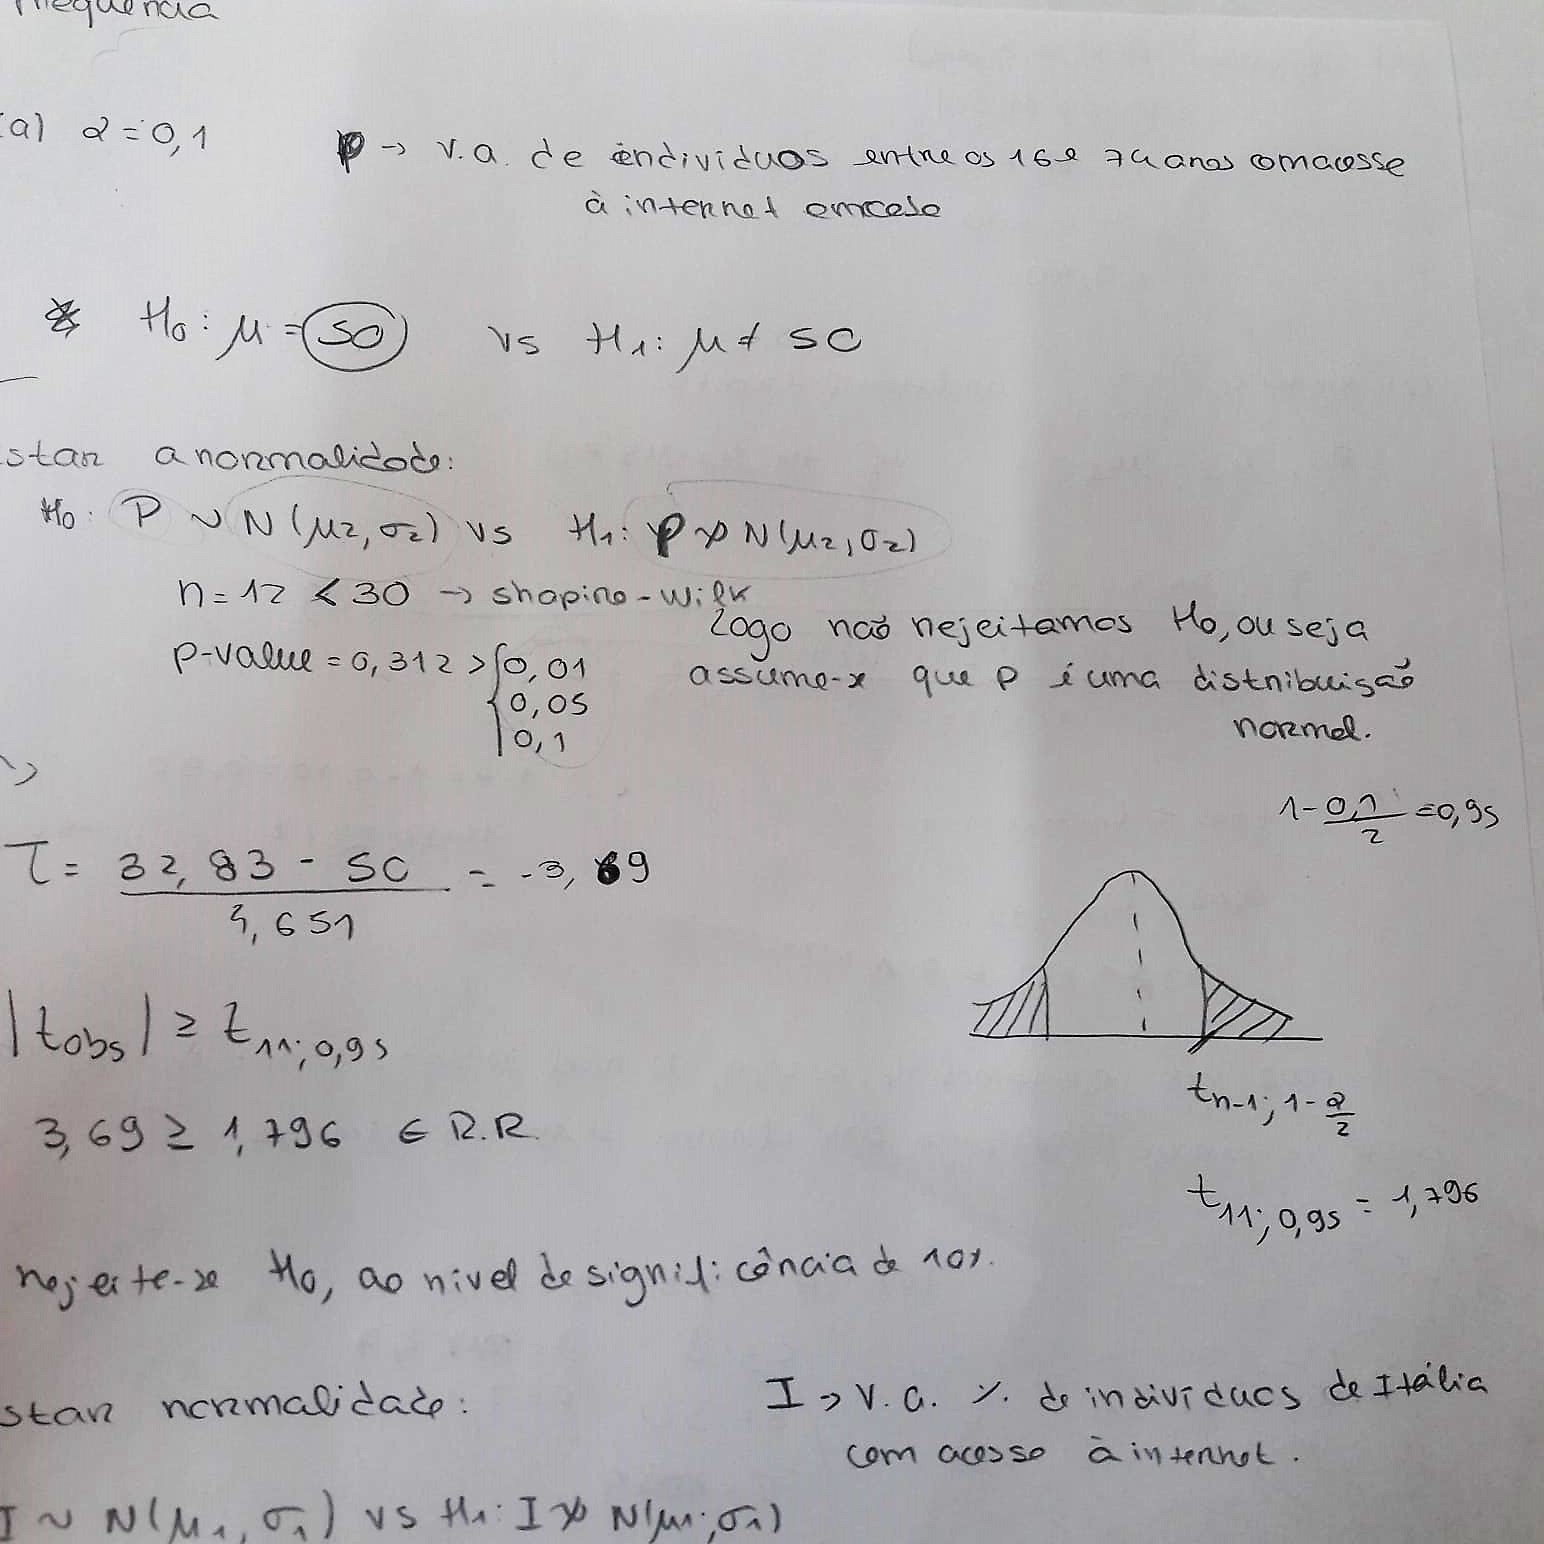 frequência
(a) α = 0,1
P → v.a. de indivíduos entre os 16 e 74 anos com acesse
à internet em casa
* H0: μ = 50 vs H1: μ ≠ 50
star a normalidade:
H0: P ~ N(μ2, σ2) vs H1: P ≁ N(μ2, σ2)
n = 12 < 30 → shapiro-wilk
p-value = 0,312 > { 0,01
0,05
0,1
Logo não rejeitamos H0, ou seja
assume-se que P é uma distribuição
normal.
1 - 0,1/2 = 0,95
T = 32,83 - 50 / 4,651 = -3,69
|tobs| ≥ t11; 0,95
3,69 ≥ 1,796 ∈ R.R.
tn-1; 1-α/2
t11; 0,95 = 1,796
rejeite-se H0, ao nivel de significância de 10%.
star normalidade:
I → v.a. % de indivíduos de Itália
com acesso à internet.
I ~ N(μ1, σ1) vs H1: I ≁ N(μ1; σ1)